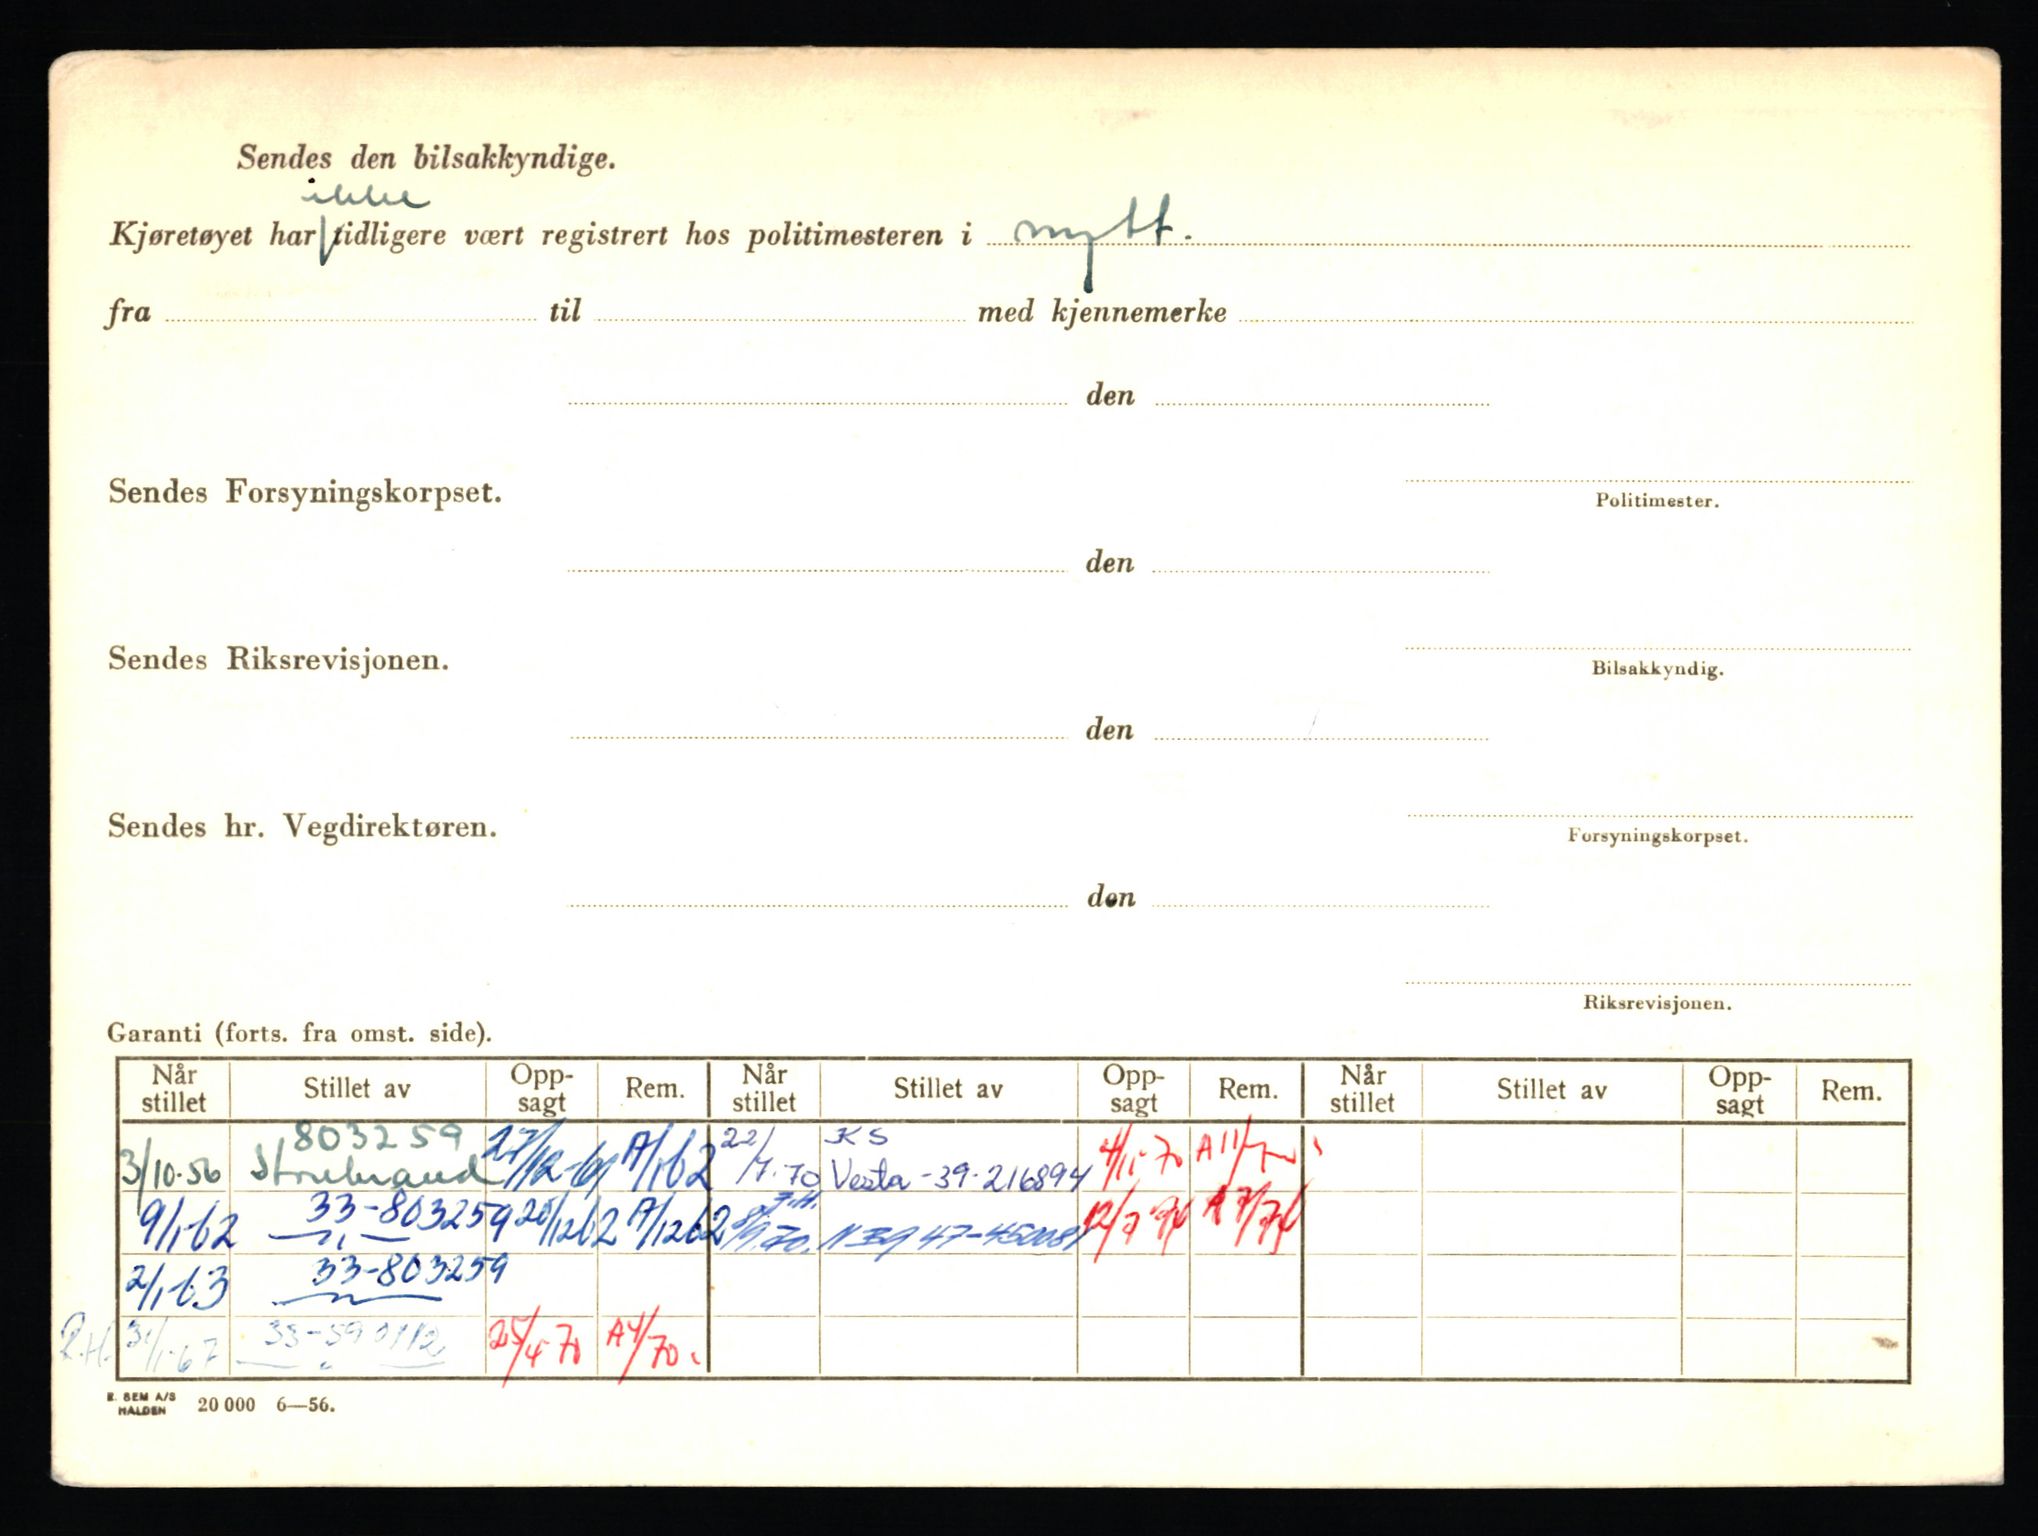 Sendes den bilsakkyndige.
ikke
Kjøretøyet har tidligere vært registrert hos politimesteren i nytt.
fra til med kjennemerke
den
Sendes Forsyningskorpset.
Politimester.
den
Sendes Riksrevisjonen.
Bilsakkyndig.
den
Sendes hr. Vegdirektøren.
Forsyningskorpset.
den
Riksrevisjonen.
Garanti (forts. fra omst. side).
Når stillet Stillet av Opp-sagt Rem. Når stillet Stillet av Opp-sagt Rem. Når stillet Stillet av Opp-sagt Rem.
803259 22/ KS
3/10-56 Storebrand 27/12-61 A/1-62 7.70 Vesta -39-216894 4/11-70 A11/70
9/1-62 33-803259 20/12-62 A/12 62 8/9.70. 47-450081 12/7 74 A 7/74
2/1-63 33-803259
R.H. 31/1-67 33-590112 25/4-70 A4/70.
E. SEM A/S
HALDEN 20 000 6—56.